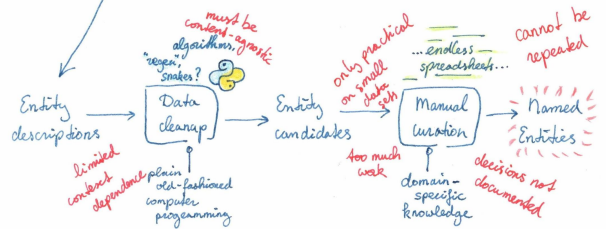 must be
content-agnostic
algorithms,
"regex",
snakes?
Entity
descriptions
Data
cleanup
limited
context
dependence
plain
old-fashioned
computer
programming
Entity
candidates
only practical
on small
data
sets
...endless
spreadsheets...
Manual
curation
too much
work
domain-
specific
knowledge
cannot be
repeated
Named
Entities
decisions not
documented